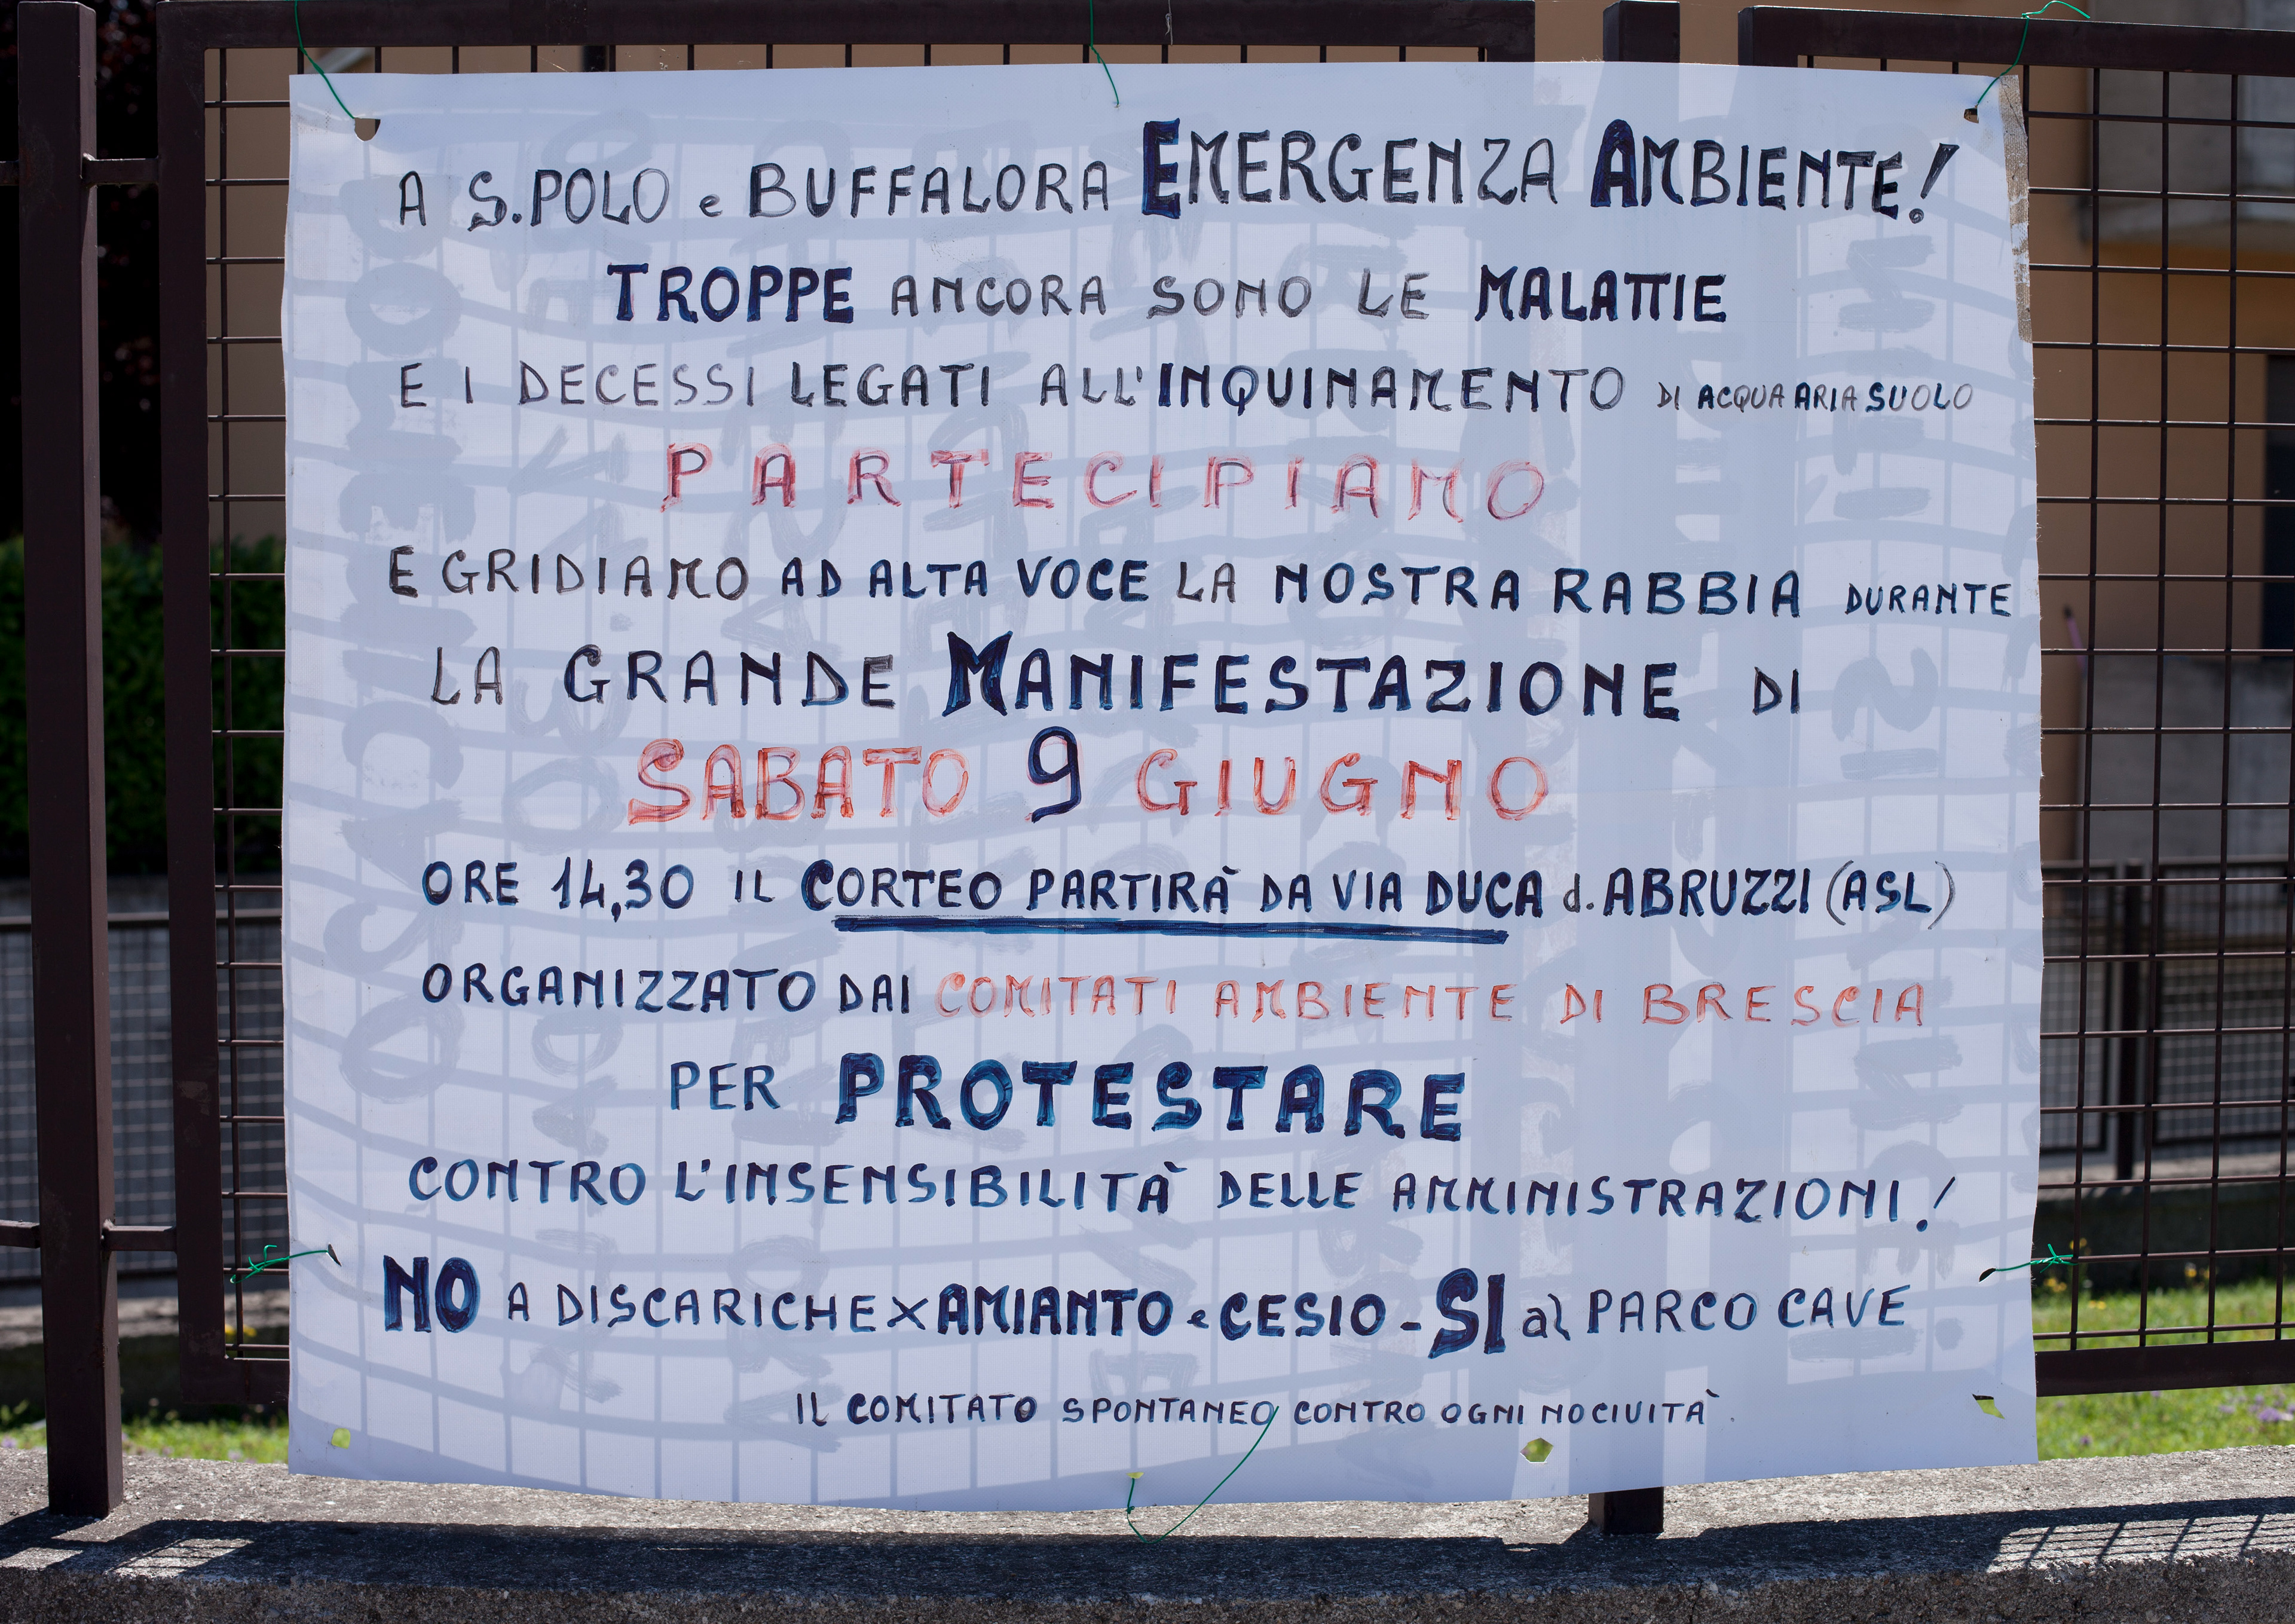 A S.POLO e BUFFALORA EMERGENZA AMBIENTE!
TROPPE ANCORA SONO LE MALATTIE
E I DECESSI LEGATI ALL'INQUINAMENTO DI ACQUA ARIA SUOLO
PARTECIPIAMO
E GRIDIAMO AD ALTA VOCE LA NOSTRA RABBIA DURANTE
LA GRANDE MANIFESTAZIONE DI
SABATO 9 GIUGNO
ORE 14,30 IL CORTEO PARTIRÀ DA VIA DUCA d. ABRUZZI (ASL)
ORGANIZZATO DAI COMITATI AMBIENTE DI BRESCIA
PER PROTESTARE
CONTRO L'INSENSIBILITÀ DELLE AMMINISTRAZIONI.!
NO A DISCARICHE X AMIANTO e CESIO - SI al PARCO CAVE
IL COMITATO SPONTANEO CONTRO OGNI NOCIVITÀ.